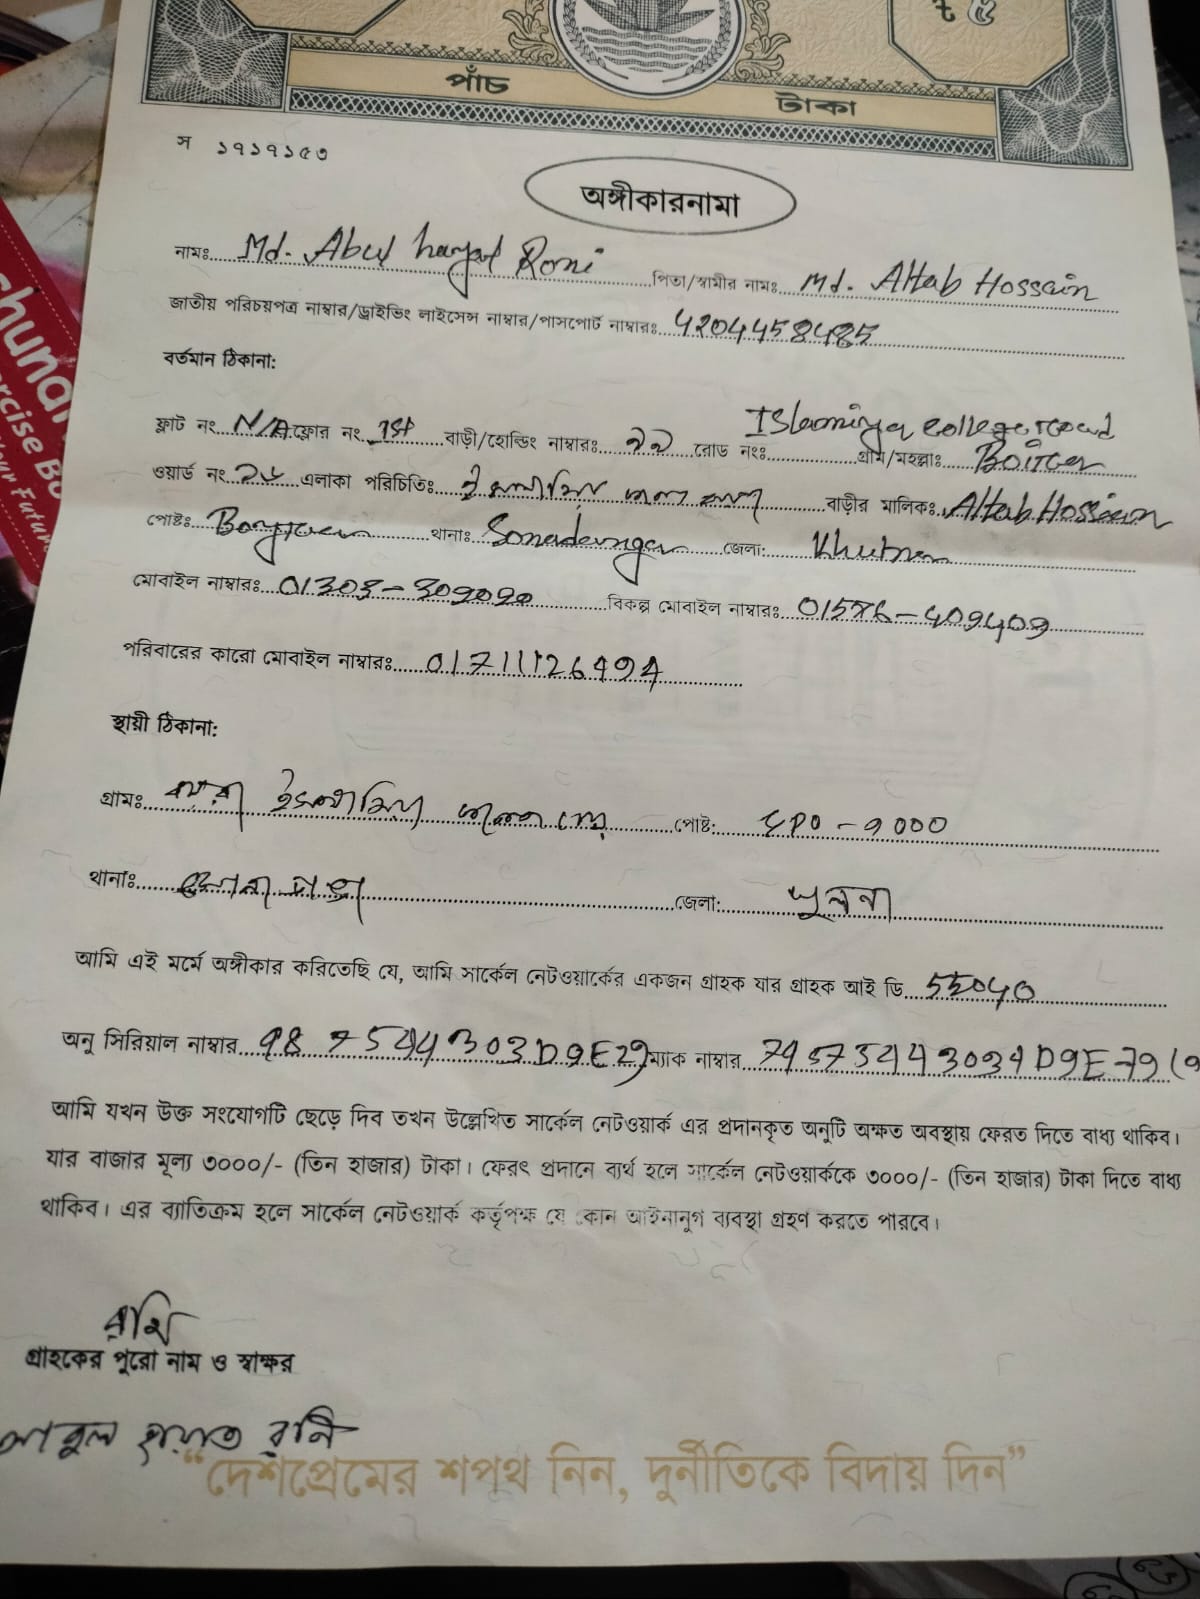 ৳ ৫
পাঁচ টাকা
স ১৭১৭১৫৩
অঙ্গীকারনামা
নামঃ Md. Abul hayat Roni পিতা/স্বামীর নামঃ Md. Altab Hossain
জাতীয় পরিচয়পত্র নাম্বার/ড্রাইভিং লাইসেন্স নাম্বার/পাসপোর্ট নাম্বারঃ 4204458485
বর্তমান ঠিকানা:
ফ্লাট নং N/A ফ্লোর নং 1st বাড়ী/হোল্ডিং নাম্বারঃ ২২ রোড নংঃ Islamiya college road গ্রাম/মহল্লাঃ
ওয়ার্ড নং এলাকা পরিচিতিঃ ইসলামিয়া কলেজ বাড়ীর মালিকঃ Altab Hossain
পোষ্টঃ থানাঃ Sonadanga জেলা: Khulna
মোবাইল নাম্বারঃ 01303-309090 বিকল্প মোবাইল নাম্বারঃ 409409
পরিবারের কারো মোবাইল নাম্বারঃ 01711126494
স্থায়ী ঠিকানা:
গ্রামঃ বয়রা ইসলামিয়া কলেজ রোড পোষ্ট: GPO - 9000
থানাঃ সোনাডাঙ্গা জেলা: খুলনা
আমি এই মর্মে অঙ্গীকার করিতেছি যে, আমি সার্কেল নেটওয়ার্কের একজন গ্রাহক যার গ্রাহক আই ডি 55040
অনু সিরিয়াল নাম্বার ম্যাক নাম্বার
আমি যখন উক্ত সংযোগটি ছেড়ে দিব তখন উল্লেখিত সার্কেল নেটওয়ার্ক এর প্রদানকৃত অনুটি অক্ষত অবস্থায় ফেরত দিতে বাধ্য থাকিব।
যার বাজার মূল্য ৩০০০/- (তিন হাজার) টাকা। ফেরৎ প্রদানে ব্যর্থ হলে সার্কেল নেটওয়ার্ককে ৩০০০/- (তিন হাজার) টাকা দিতে বাধ্য
থাকিব। এর ব্যাতিক্রম হলে সার্কেল নেটওয়ার্ক কর্তৃপক্ষ যে কোন আইনানুগ ব্যবস্থা গ্রহণ করতে পারবে।
রনি
গ্রাহকের পুরো নাম ও স্বাক্ষর
আবুল হায়াত রনি
“দেশপ্রেমের শপথ নিন, দুর্নীতিকে বিদায় দিন”